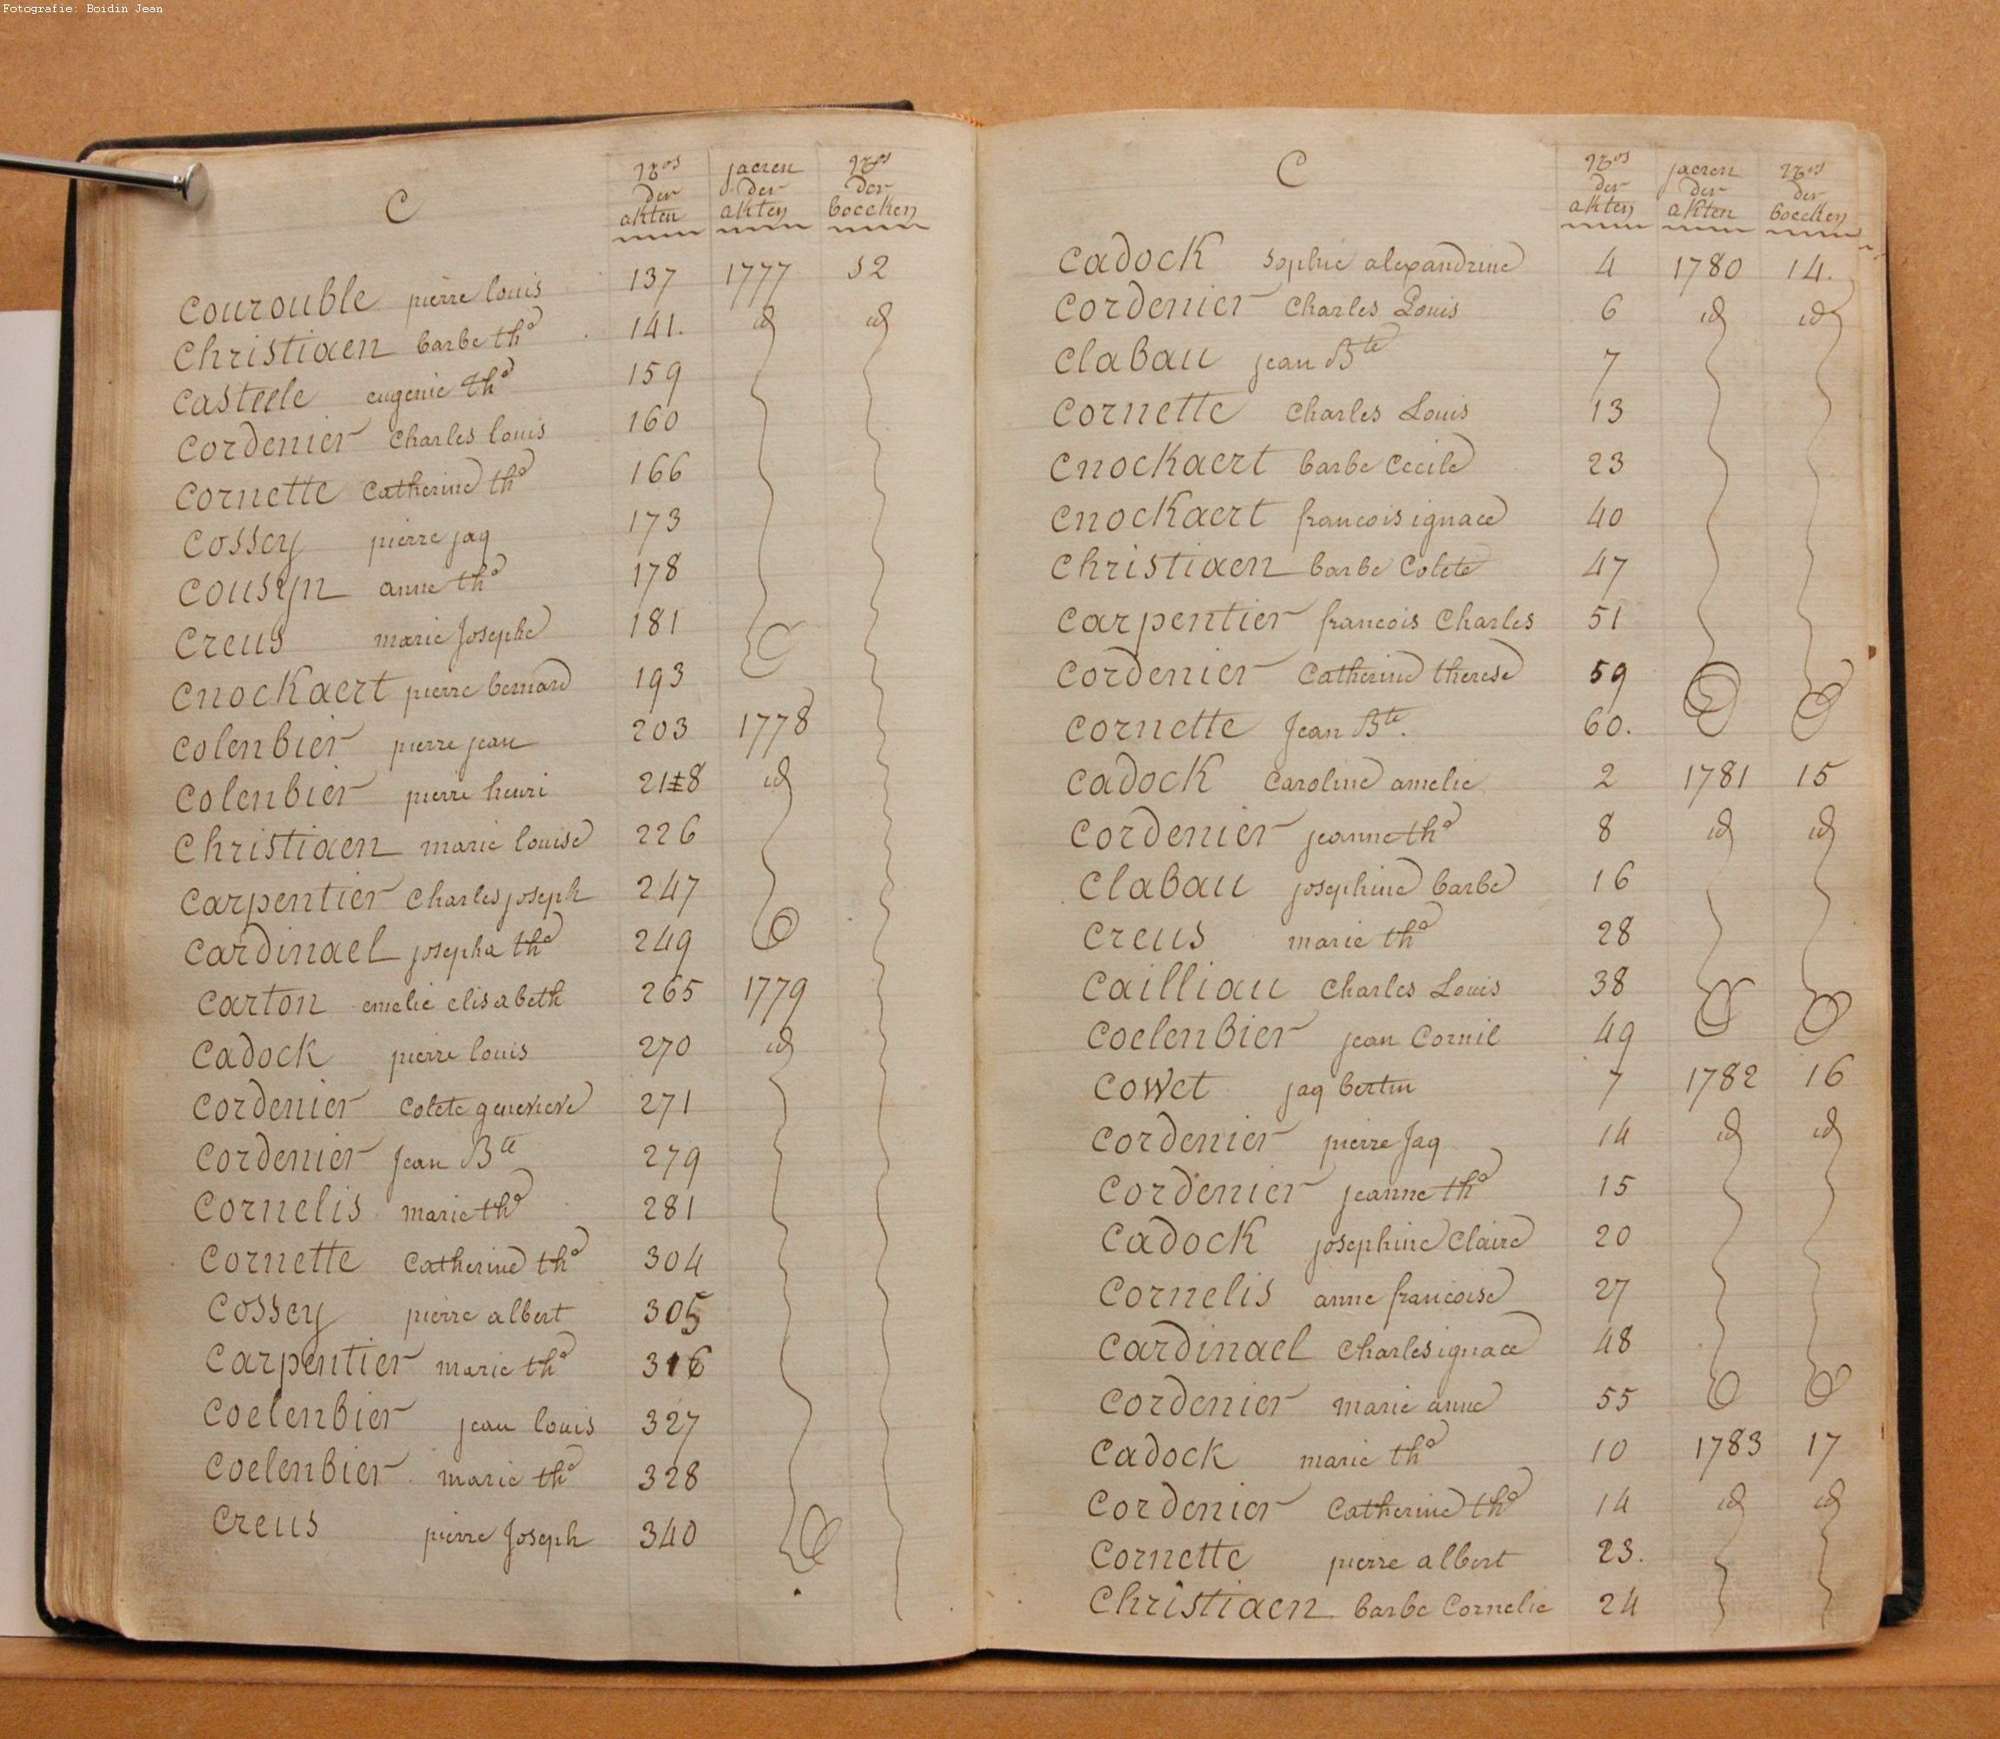 Fotografie: Boidin Jean
C
Nros der akten
jaeren der akten
Nros der boecken
Courouble pierre louis 137 1777 12
Christiaen barbe the 141. id id
Casteele eugenie the 159
Cordenier Charles louis 160
Cornette Catherine the 166
Cossey pierre jaq 173
Cousyn anne the 178
Creus marie Josephe 181
Cnockaert pierre bernard 193
Colenbier pierre jean 203 1778
Colenbier pierre henri 218 id
Christiaen marie louise 226
Carpentier Charles joseph 247
Cardinael josepha the 249
Carton emelie elisabeth 265 1779
Cadock pierre louis 270 id
Cordenier Colete genevieve 271
Cordenier Jean Bte 279
Cornelis marie the 281
Cornette Catherine the 304
Cossey pierre albert 305
Carpentier marie the 316
Coelenbier jean louis 327
Coelenbier marie the 328
Creus pierre Joseph 340
C
Nros der akten
jaeren der akten
Nros der boecken
Cadock Sophie alexandrine 4 1780 14.
Cordenier Charles Louis 6 id id
Clabau jean Bte 7
Cornette Charles Louis 13
Cnockaert barbe Cecile 23
Cnockaert francois ignace 40
Christiaen barbe Colete 47
Carpentier francois Charles 51
Cordenier Catherine therese 59
Cornette Jean Bte. 60.
Cadock Caroline amelie 2 1781 15
Cordenier jeanne the 8 id id
Clabau josephine barbe 16
Creus marie the 28
Cailliau Charles Louis 38
Coelenbier jean Cornil 49
Cowet jaq bertin 7 1782 16
Cordenier pierre Jaq 14 id id
Cordenier jeanne the 15
Cadock josephine Claire 20
Cornelis anne francoise 27
Cardinael Charles ignace 48
Cordenier marie anne 55
Cadock marie the 10 1783 17
Cordenier Catherine the 14 id id
Cornette pierre albert 23.
Christiaen barbe Cornelie 24